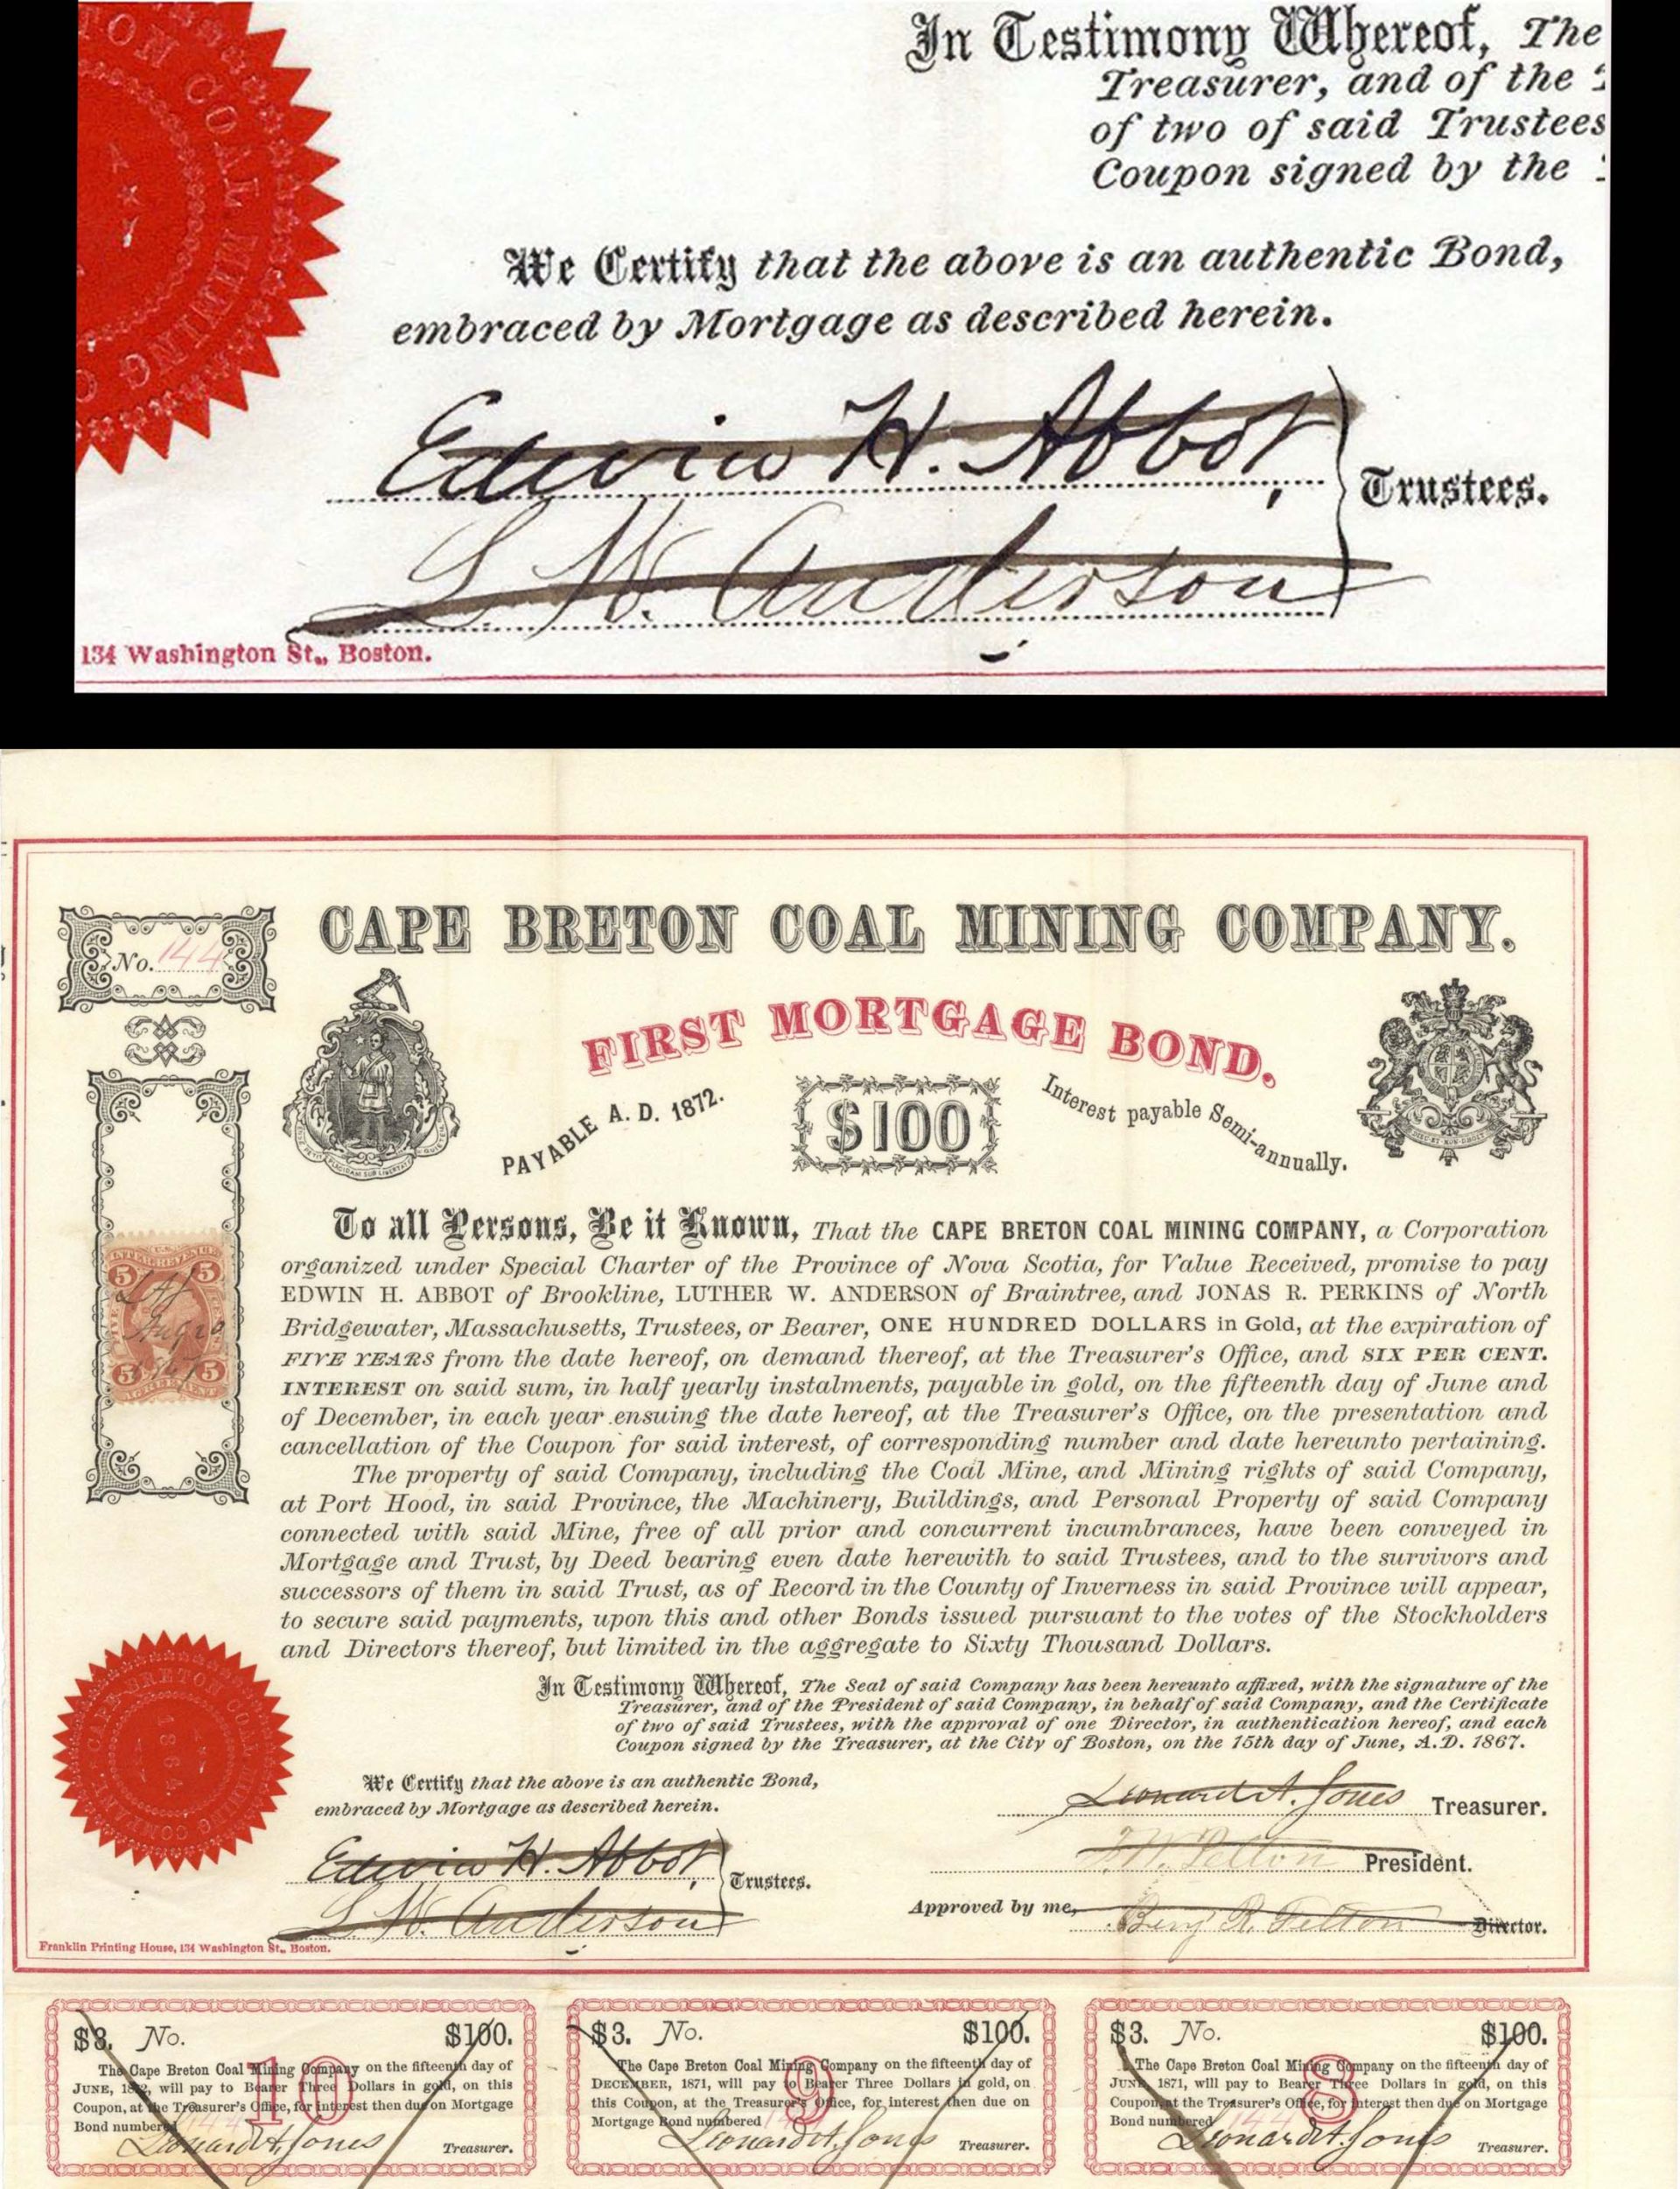 In Testimony Whereof, The
Treasurer, and of the
of two of said Trustees
Coupon signed by the
ON COAL MINING
We Certify that the above is an authentic Bond,
embraced by Mortgage as described herein.
Edwin H. Abbot,
Trustees.
L. W. Anderson
134 Washington St., Boston.
CAPE BRETON COAL MINING COMPANY.
No. 144
FIRST MORTGAGE BOND.
PAYABLE A. D. 1872.
$100
Interest payable Semi-annually.
To all Persons, Be it Known, That the CAPE BRETON COAL MINING COMPANY, a Corporation
organized under Special Charter of the Province of Nova Scotia, for Value Received, promise to pay
EDWIN H. ABBOT of Brookline, LUTHER W. ANDERSON of Braintree, and JONAS R. PERKINS of North
Bridgewater, Massachusetts, Trustees, or Bearer, ONE HUNDRED DOLLARS in Gold, at the expiration of
FIVE YEARS from the date hereof, on demand thereof, at the Treasurer's Office, and SIX PER CENT.
INTEREST on said sum, in half yearly instalments, payable in gold, on the fifteenth day of June and
of December, in each year ensuing the date hereof, at the Treasurer's Office, on the presentation and
cancellation of the Coupon for said interest, of corresponding number and date hereunto pertaining.
The property of said Company, including the Coal Mine, and Mining rights of said Company,
at Port Hood, in said Province, the Machinery, Buildings, and Personal Property of said Company
connected with said Mine, free of all prior and concurrent incumbrances, have been conveyed in
Mortgage and Trust, by Deed bearing even date herewith to said Trustees, and to the survivors and
successors of them in said Trust, as of Record in the County of Inverness in said Province will appear,
to secure said payments, upon this and other Bonds issued pursuant to the votes of the Stockholders
and Directors thereof, but limited in the aggregate to Sixty Thousand Dollars.
INTER. REVENUE
5 5
LAJ
Aug 20
1867
5 5
AGREEMENT
In Testimony Whereof, The Seal of said Company has been hereunto affixed, with the signature of the
Treasurer, and of the President of said Company, in behalf of said Company, and the Certificate
of two of said Trustees, with the approval of one Director, in authentication hereof, and each
Coupon signed by the Treasurer, at the City of Boston, on the 15th day of June, A.D. 1867.
CAPE BRETON COAL MINING COMPANY
1864
We Certify that the above is an authentic Bond,
embraced by Mortgage as described herein.
Edwin H. Abbot,
Trustees.
L. W. Anderson
Leonard A. Jones Treasurer.
President.
Approved by me, Director.
Franklin Printing House, 134 Washington St., Boston.
$3. No. $100.
The Cape Breton Coal Mining Company on the fifteenth day of
JUNE, 1872, will pay to Bearer Three Dollars in gold, on this
Coupon, at the Treasurer's Office, for interest then due on Mortgage
Bond numbered 144
10
Leonard A. Jones Treasurer.
$3. No. $100.
The Cape Breton Coal Mining Company on the fifteenth day of
DECEMBER, 1871, will pay to Bearer Three Dollars in gold, on
this Coupon, at the Treasurer's Office, for interest then due on
Mortgage Bond numbered 144
9
Leonard A. Jones Treasurer.
$3. No. $100.
The Cape Breton Coal Mining Company on the fifteenth day of
JUNE, 1871, will pay to Bearer Three Dollars in gold, on this
Coupon, at the Treasurer's Office, for interest then due on Mortgage
Bond numbered 144
8
Leonard A. Jones Treasurer.